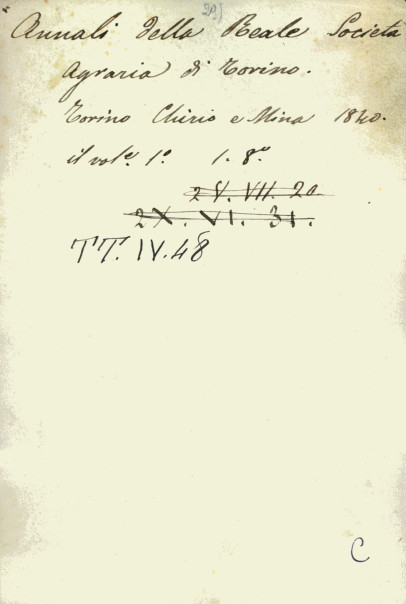 Annali della Reale Società
Agraria di Torino.
Torino Chirio e Mina 1840.
il vol.e 1.o 1. 8.o
2 V. VII. 20.
2 X. VI. 31.
TT. IV. 48
C